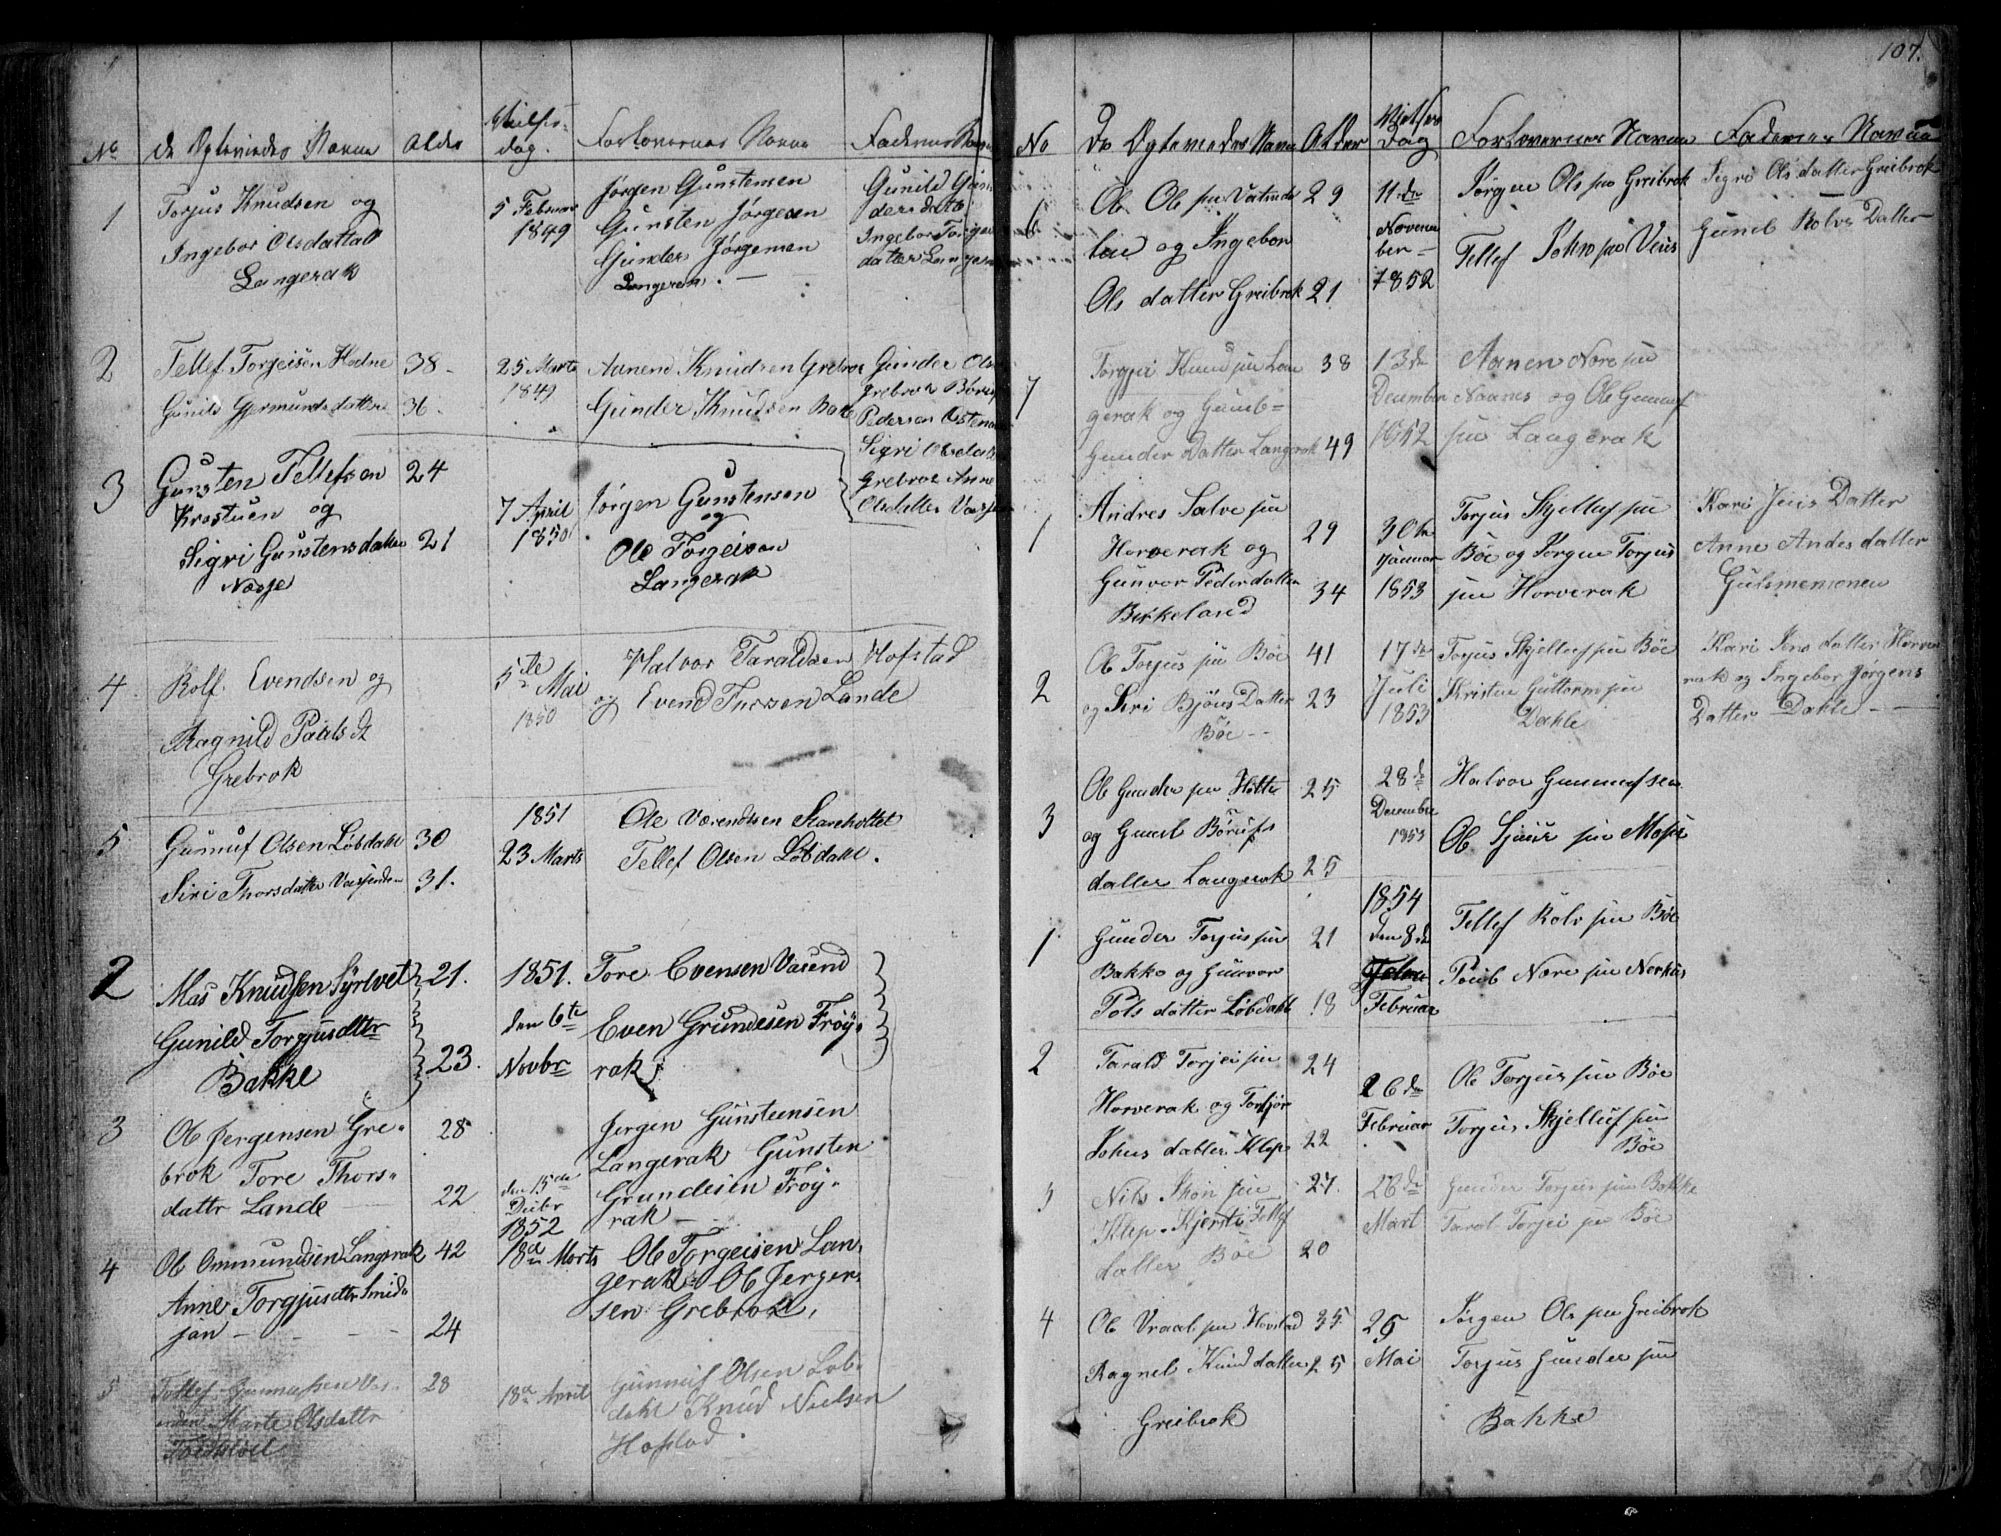 107.
No de Ægteviedes Navne Alder Vielses-
dag. Forlovernes Navne Faderens Navn
1 Torjus Knudsen og
Ingebor Olsdatter
Langerak
5 Februar
1849
Jørgen Gunstensen
Gunsten Jørgesen
Gunder Jørgensen
Langerak. —
Gunild Gun-
dersdatter
Ingebor Torje
datter Langerak
2 Tellef Torgeisen Hodne 38.
Gunild Gjermundsdatter 36.
25 Marts
1849
Aanend Knudsen Grebrok
Gunder Knudsen Bakke
Gunder Olsen
Grebrok Børe
Pedersen Ostena
Sigri Olsdatter
Grebrok Anne
Olsdatter
3 Gunsten Tellefsen 24
og
Sigri Gunstensdatter 21
7 April
1850
Jørgen Gunstensen
og
Ole Torgeisen
Langerak
4 Rolf Evendsen og
Ragnild Paals
Grebrok
5te Mai
1850
Halvor Taraldsen Hofstad
og Evend Thorsen Lande
5 Gunnuf Olsen Løbdahl 30
Siri Thorsdatter Vasenden 31.
1851
23 Marts
Ole Skareholtet
Tellef Olsen Løbdahl.
2 Mas Knudsen Syrtvet 21.
Gunild Torgjusdttr
Bakke 23.
1851.
den 6te
Novbr
Tore Evensen Vasend
Even Grundesen Frøy-
rak
3 Ole Jergensen Gre-
brok Tore Thors-
dattr Lande
28
22
den 15de
Debr
Jergen Gunsteensen
Langerak Gunsten
Grundesen Frøy-
rak —
4 Ole Ommundsen Langerak 42
Anne Torgjusdtr Smid-
jån — 24
1852
18de Marts
Ole Torgeisen Lan-
gerak Ole Jergen-
sen Grebrok.
5 Tellef Gunnufsen Vas-
enden Marte Olsdattr
28
18de April
Gunnuf Olsen Løb-
dahl Knud Nielsen
Hofstad.
No De Ægteviedes Navne Alder Vielses
Dag Forlovernes Navne Faderens Navne
6 Ole Ols 29
og Ingebor
Ols datter Greibrok 21
11de
November
1852
Jørgen Ols søn Greibrok
Tellef Johns søn
Sigri Ols datter Greibrok
Gunild Rolvs Datter
7 Torgjei Knud søn Lan 38
gerak og Gunild
Gunder Datter Langerak 49
13de
December
1852
Aanen Nore søn
Naanes og Ole Gunnuf
søn Langerak
1 Andres Salve søn
Horverak og
Gunvor Peder datter
Birkeland
29
34
30te
Januar
1853
Torjus Skjelluf søn
Bøe og Jorgen Torjus
søn Horverak
Kari Jens Datter
Anne Andes datter
2 Ole Torjus søn Bøe 41
og Siri Bjøns Datter 23
Bøe --
17de
Juli
1853
Torjus Skjelluf søn Bøe
Kristen Guttorm søn
Dahle
Kari Jens datter Horve
rak og Ingebor Jørgens
Datter Dahle
3 Ole Gunder søn 25
og Gunild
datter Langerak 25
28de
December
1853
Halvor Gunnufsen
Ole søn
1 Gunder Torjus søn 21
Bakke og Gunvor
Pols datter Løbdahl 18
1854
den 8de
Februar
Tellef Rolv søn Bøe
Nore søn
2 Tarald Torjei søn 24
Horverak og Torbjør
Johns datter Klep 22
26de
Februar
Ole Torjus søn Bøe
Torjus Skjelluf søn
Bøe
3 Nils søn 27.
Klep. Kjersti Tellef
datter Bøe 20
28de
Mart
Gunder Torjus søn Bakke
Taral Torjei søn Bøe
4 Ole Vraal søn Hovstad 35
Ragnel Knud datter 25
Greibrok
25
Mai
Jørgen Ols søn Greibrok
Torjus Gunder søn
Bakke